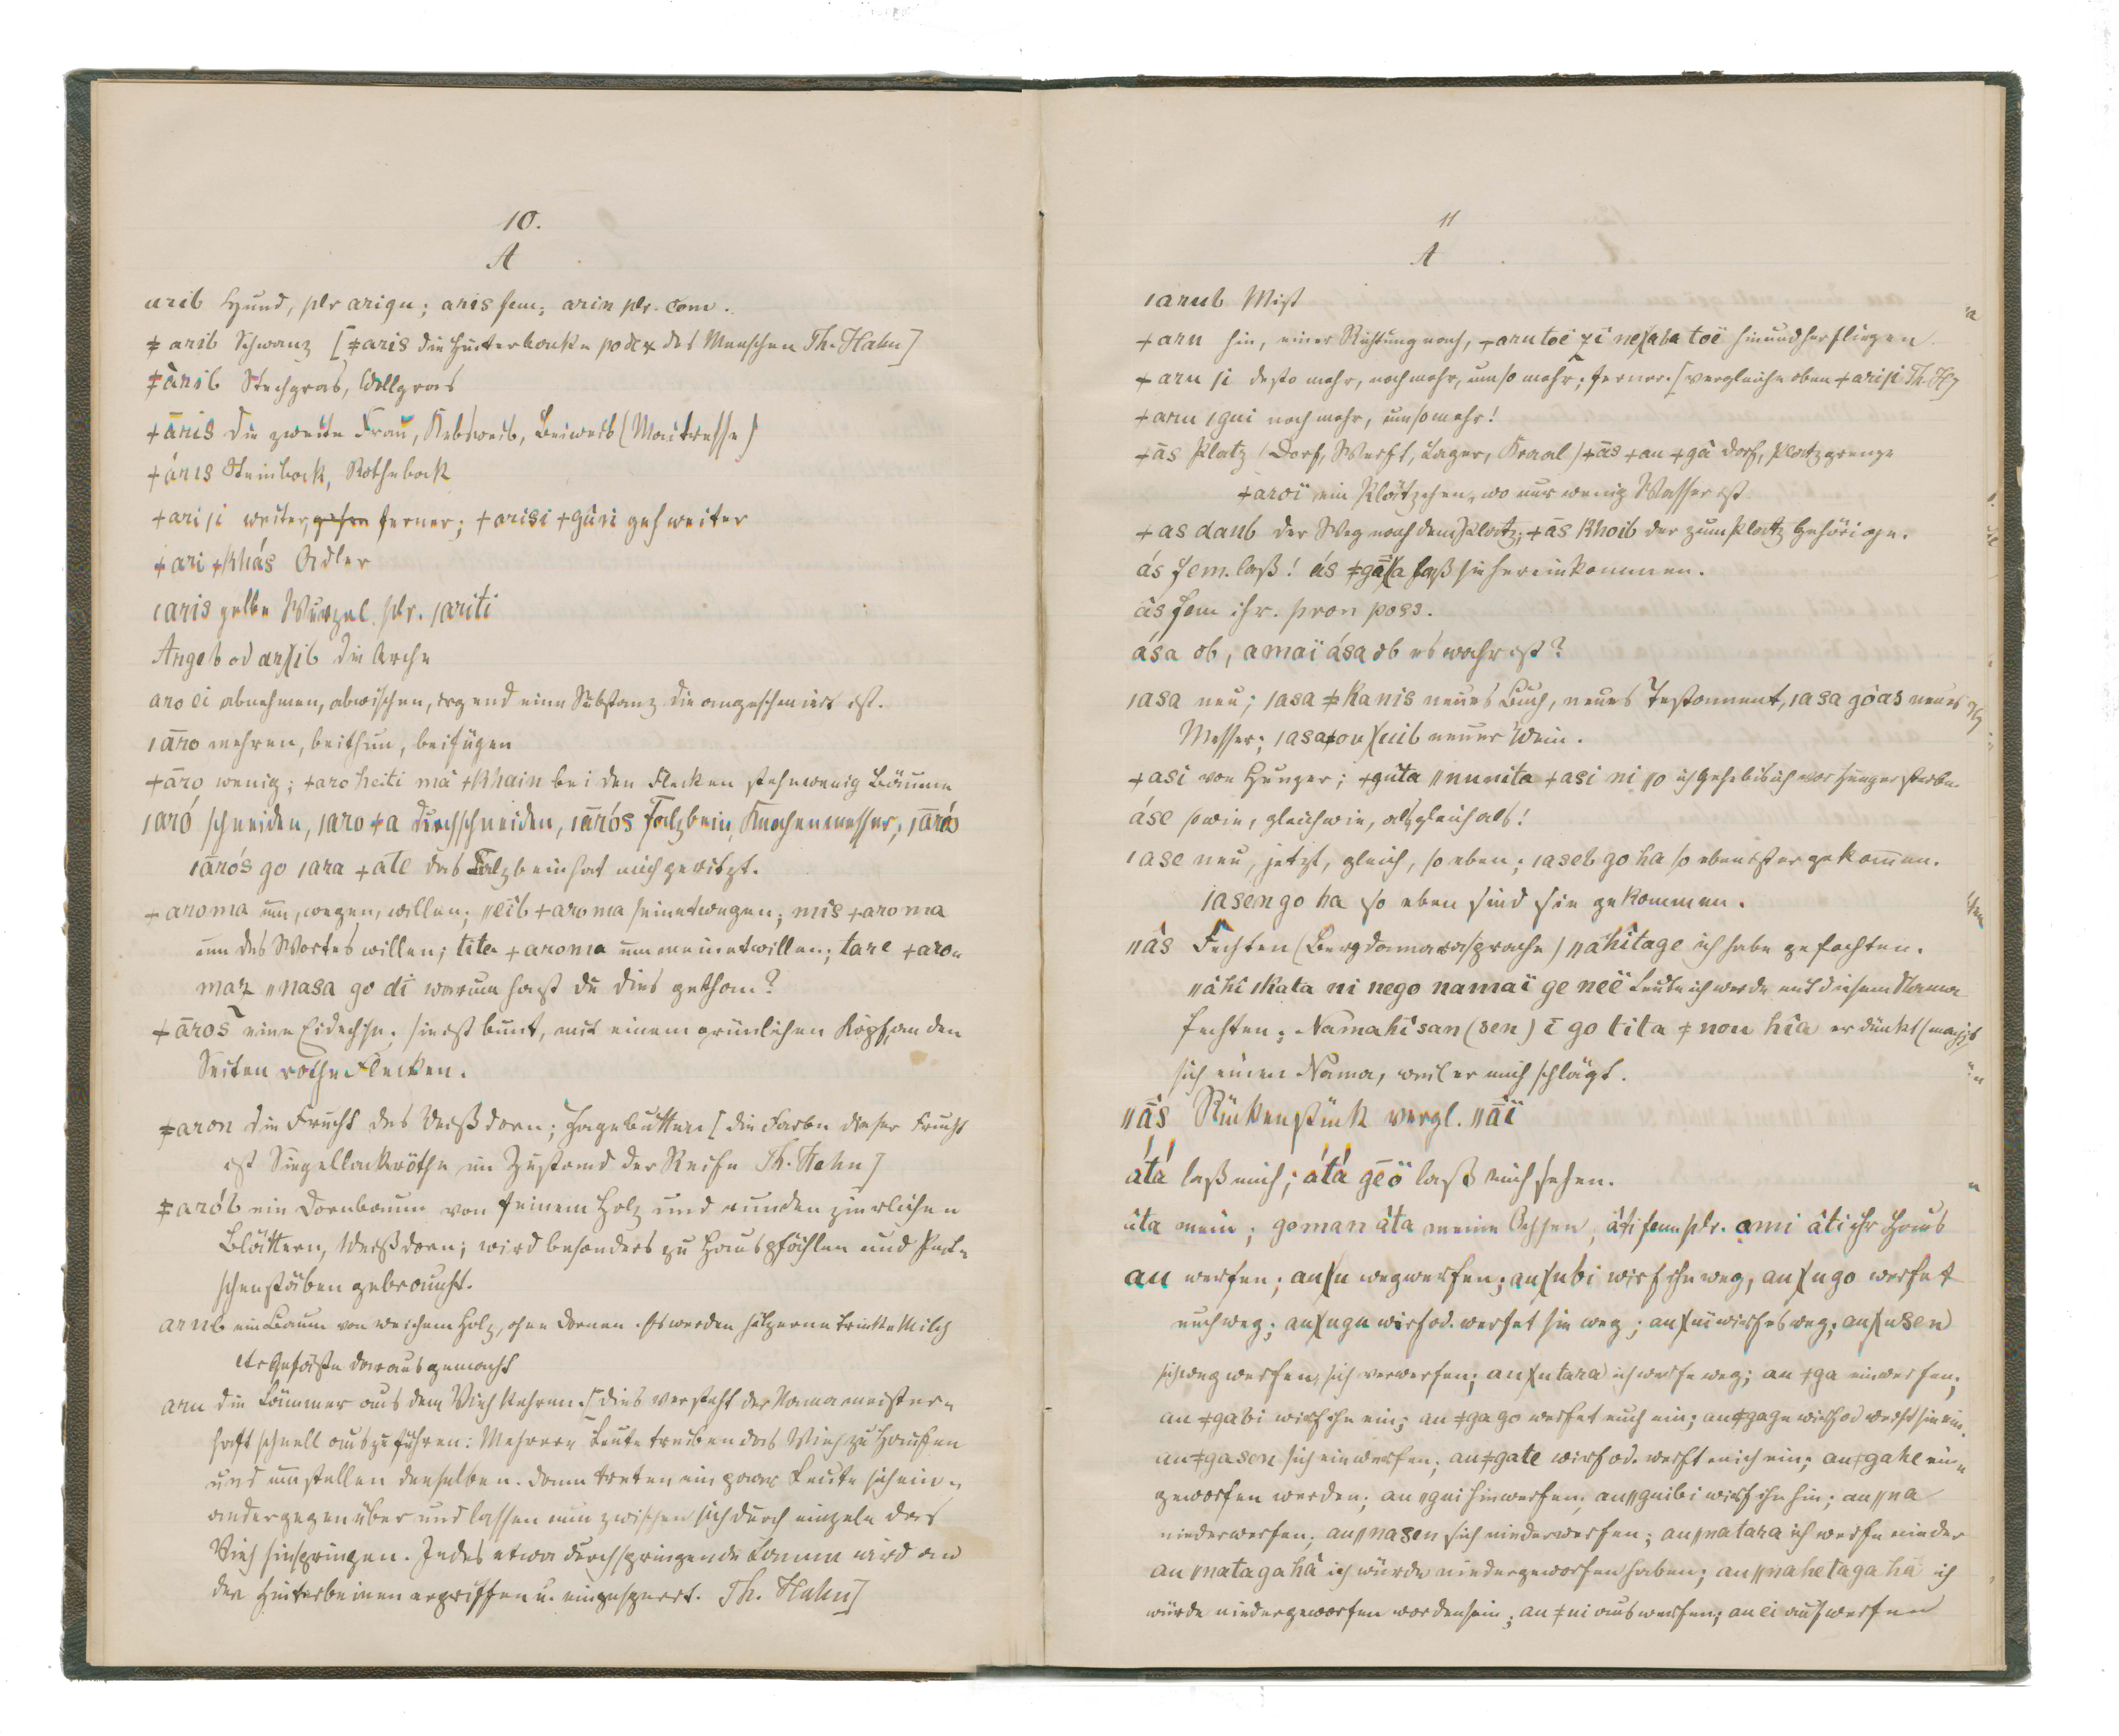 10.
A
arib Hund, plr arigu; aris fem; arin plr. com.
ǂarib Schwanz [ǂaris die Hinterbacke podex des Menschen Th. Hahn]
ǂârib Stechgras, Wollgras
+āris die zweite Frau, Kebsweib, Beiweib (Maitresse)
+áris Steinbock, Rothebock
+ari/i weiter, gehen ferner; +arisi +gūri geh weiter
+ari +khás Adler
ıaris gelbe Wurzel. plr. ıariti
Anges od anχib die Arche
aro ei abnehmen, abwischen, irgend eine Substanz die angeschmiert ist.
ıāro mehren, beithun, beifügen
+āro wenig; +aro heiti mā +khain bei den Flecken stehn wenig Bäume
ıaró schneiden, ıaro+a durchschneiden, ıārós Falzbein, Knochenmesser, ıārós
ıārós go ıara +ate das Falzbein hat mich geritzt.
+aroma um, wegen, willen; ııeib +aroma seinetwegen; mis +aroma
um des Wortes willen; tita +aroma um meinetwillen; tare +aro=
maz ıınasa go dī warum hast du dies gethan?
+āros eine Eidechse; sie ist bunt, mit einem grünlichen Kopf, an den
Seiten rothe Flecken.
ǂaron die Frucht des Weißdorn; Hagebutten [die Farbe dieser Frucht
ist Siegellackröthe im Zustand der Reife Th. Hahn]
ǂarób ein Dornbaum von feinem Holz und runden zierlichen
Blättern, Weißdorn; wird besonders zu Hauspfählen und Peit=
schenstäben gebraucht.
arub ein Baum von weichem Holz, ohne Dornen. Es werden hölzerne Trinkte Milch
etc Gefäße daraus gemacht
aru die Lämmer aus dem Vieh kehren. [dies versteht der Nama meister=
haft schnell auszuführen: Mehrere Leute treiben das Vieh zu Haufen
und umstellen denselben. Dann treten ein paar Leute sich ein=
ander gegenüber und lassen nun zwischen sich durch einzeln das
Vieh hinspringen. Jedes etwa durchspringende Lamm wird an
den Hinterbeinen ergriffen u. eingesperrt. Th. Hahn]
11
A
ıarub Mist
+aru hin, einer Richtung nach, +aru toë χī neχaba toë hin und her fliegen
+aru/i desto mehr, noch mehr, um so mehr; ferner. [vergleiche oben +ari/i Th. H]
+aru ıgui noch mehr, um so mehr!
+ās Platz (Dorf, Werft, Lager, Kraal) +ās +au +gā Dorf, Platzgrenze
+aroï ein Plätzchen, wo nur wenig Wasser ist.
+as daub der Weg nach dem Platz; +ās khoib der zum Platz gehörige.
ás fem. laß! ás ǂgāχa laß sie hereinkommen.
âs fem ihr. pron poss.
ása ob, amaï ása ob es wahr ist?
ıasa neu; ıasa ǂkanis neues Buch, neues Testament, ıasa góas neues
Messer; ıasa +ouχuib neuer Wein.
+asi vor Hunger; +gūta ıınunita +asi ni ıı0 ich gehe bis ich vor Hunger sterbe.
áse /wie, gleichwie, als, gleich als!
ıase neu, jetzt, gleich, so eben; ıaseb go ha so eben ist er gekommen.
ıasen go ha so eben sind sie gekommen.
ııâs Fechten (Bergdamarasprache) ııâhîtage ich habe gefochten.
ııâhî ıkata ni nego namaï ge neë Leute ich werde mit diesem Nama
fechten; Namahîsan (sen) ī go tita ǂnou hîa er dünkt (macht)
sich einen Nama, weil er mich schlägt.
ııās Rückenstück vergl. ııāï
átá laß mich; átá gēö laß mich sehen.
âta mein; goman âta meine Ochsen, âti fem plr. omi âti ihr Haus
au werfen; auχu wegwerfen; auχubi wirf ihn weg, auχugo werfet
euch weg; auχugu wirf od. werfet sie weg; auχuï wirf es weg; auχusen
sich wegwerfen, sich verwerfen; auχutara ich werfe weg; au ǂga einwerfen;
au ǂgabi wirf ihn ein; au ǂgago werfet euch ein; auǂgagu wirf od werft sie ein.
auǂgasen sich einwerfen; auǂgate wirf od. werft mich ein; auǂgahe ein=
geworfen werden; auıı gui hinwerfen; auıı guibi wirf ihn hin; auıına
niederwerfen; auıınasen sich niederwerfen; auıınatara ich werfe nieder
auıınatagahâ ich würde niedergeworfen haben; auıınahetagahā ich
würde niedergeworfen worden sein; auǂui auswerfen; au ei aufwerfen